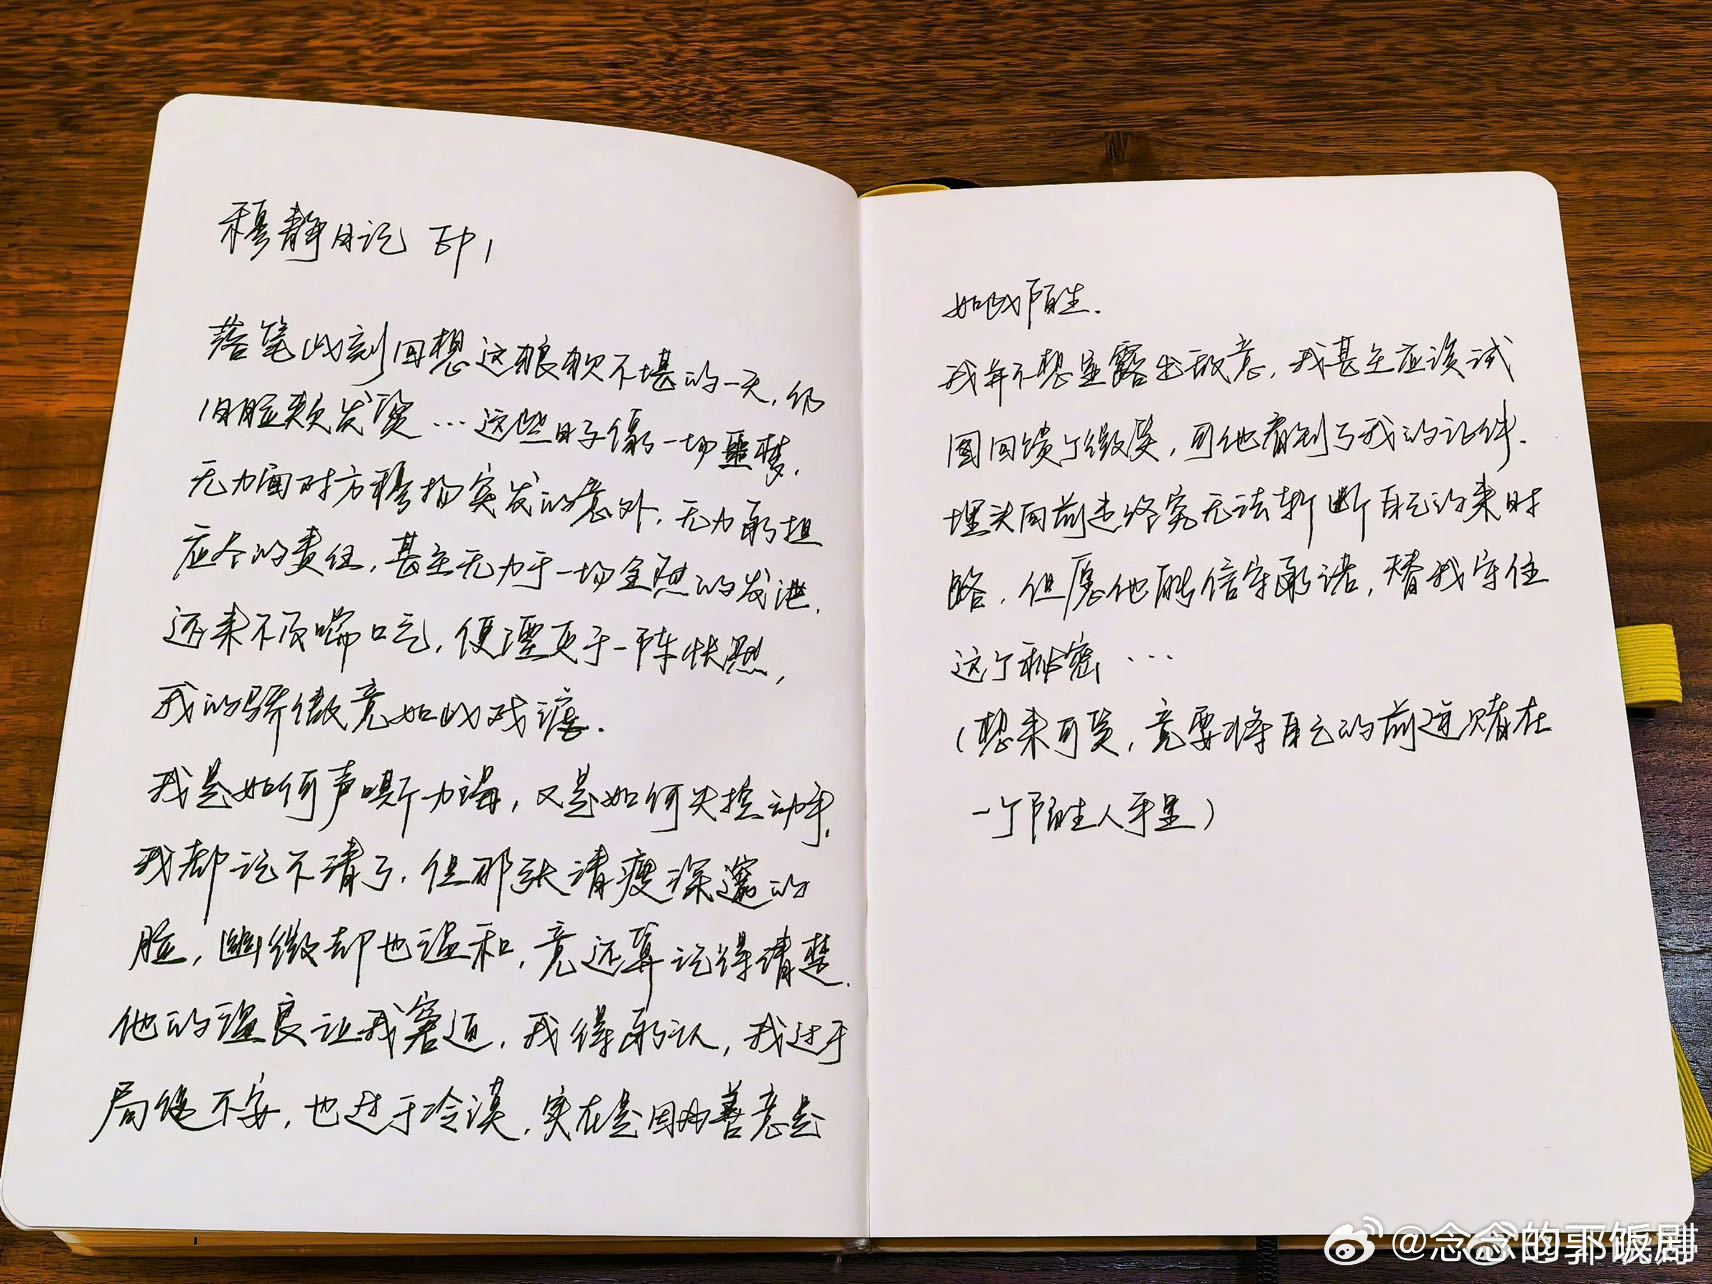 穆静日记 EP1
落笔此刻回想这狼狈不堪的一天，仍
旧脸颊发烫…这些日子像一场噩梦，
无力面对方穆扬突发的意外，无力承担
应尽的责任，甚至无力于一场全然的发泄，
还来不及喘口气，便湮灭于一阵快照，
我的骄傲竟如此残凛。
我是如何声嘶力竭，又是如何失控动手，
我都记不清了，但那张清瘦深邃的
脸，幽微却也温和，竟还算记得清楚。
他的温良让我窘迫，我得承认，我过于
局促不安，也过于冷漠，实在是因为善意是
如此陌生.
我并不想显露出敌意，我甚至应该试
图回馈个微笑，可他看到了我的证件.
埋头向前走终究无法斩断自己的来时
路，但愿他能信守承诺，替我守住
这个秘密…
（想来可笑，竟要将自己的前途赌在
一个陌生人手里）
@念念的郭饭剧